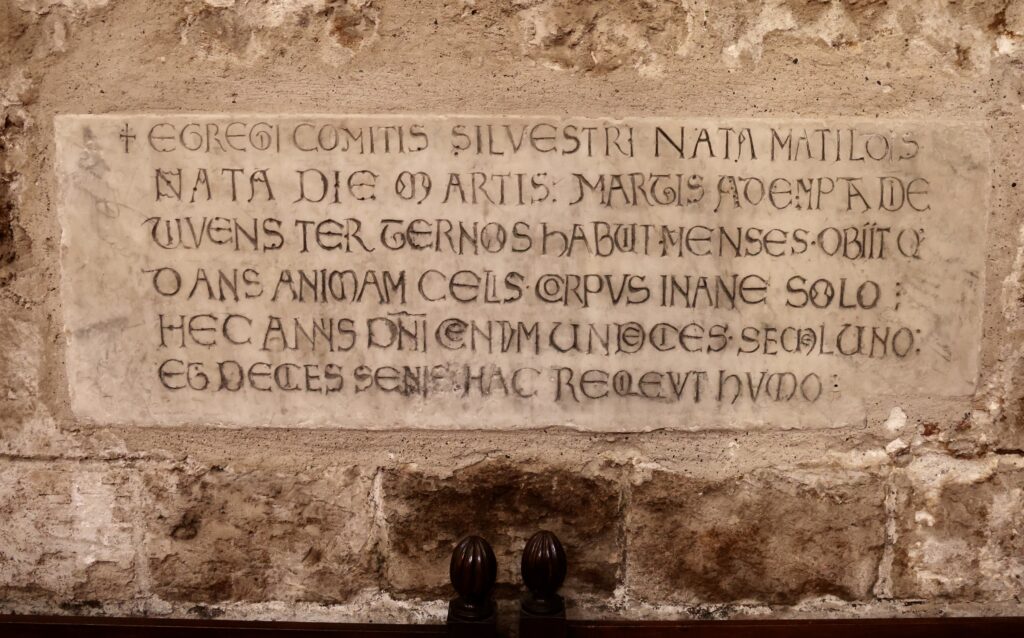 ✝ EGREGI COMITIS SILVESTRI NATA MATILDIS
NATA DIE MARTIS: MARTIS ADEMPTA DIE
VIVENS TER TERNOS HABUIT MENSES·OBIIT Q'
DANS ANIMAM CELIS·CORPVS INANE SOLO⋮
HEC ANNIS DÑI CENTVM UNDECIES·SEMEL UNO:
ET DECIES SENIS·HAC REQEVT HVMO⋮